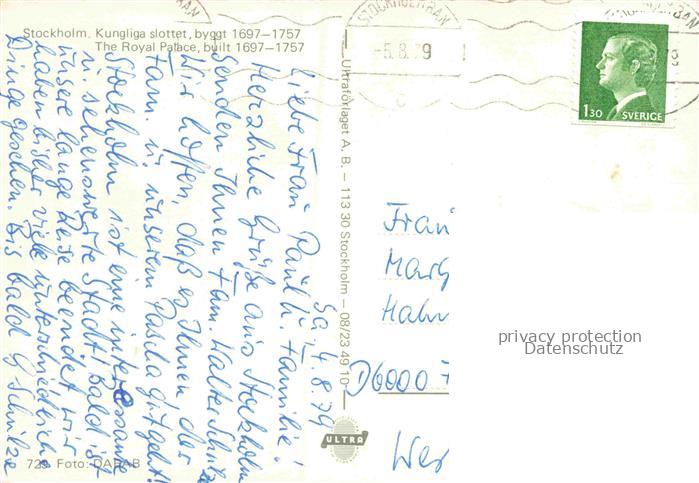 Stockholm. Kungliga slottet, byggt 1697—1757
The Royal Palace, built 1697—1757
STOCKHOLM BAN
-5.8.79
1.30 SVERIGE
Sa, 4.8.79
Liebe Frau Paul u. Familie!
Herzliche Grüße aus Stockholm
senden Ihnen Fam. Walter Schulze
Wir hoffen, daß es Ihnen der
Fam. u. unserem Pascha gut geht!
Stockholm ist eine interessante
u. sehenswerte Stadt. Bald ist
unsere lange Reise beendet, wir
haben bisher viele unterschiedliche
Dinge gesehen. Bis bald G. Schulze
Ultraförlaget A. B. — 113 30 Stockholm — 08/23 49 10
ULTRA
729 Foto: DABAB
Frau
Marg
Hahn
D6000
Wes
privacy protection
Datenschutz